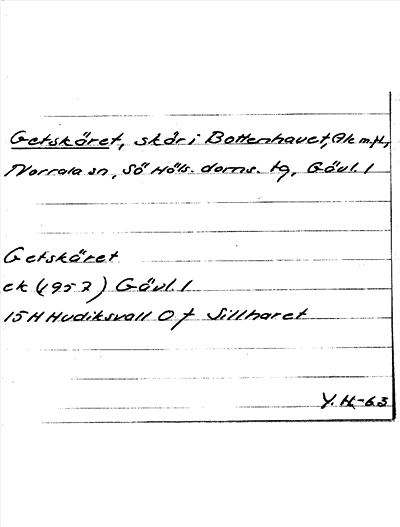 Getskäret, skär i Bottenhavet,
Norrala sn, Sö Häls. doms. tg, Gävl. l
Getskäret
ek (1957) Gävl. l
15H Hudiksvall 0 f Sillharet
Y. H.-63